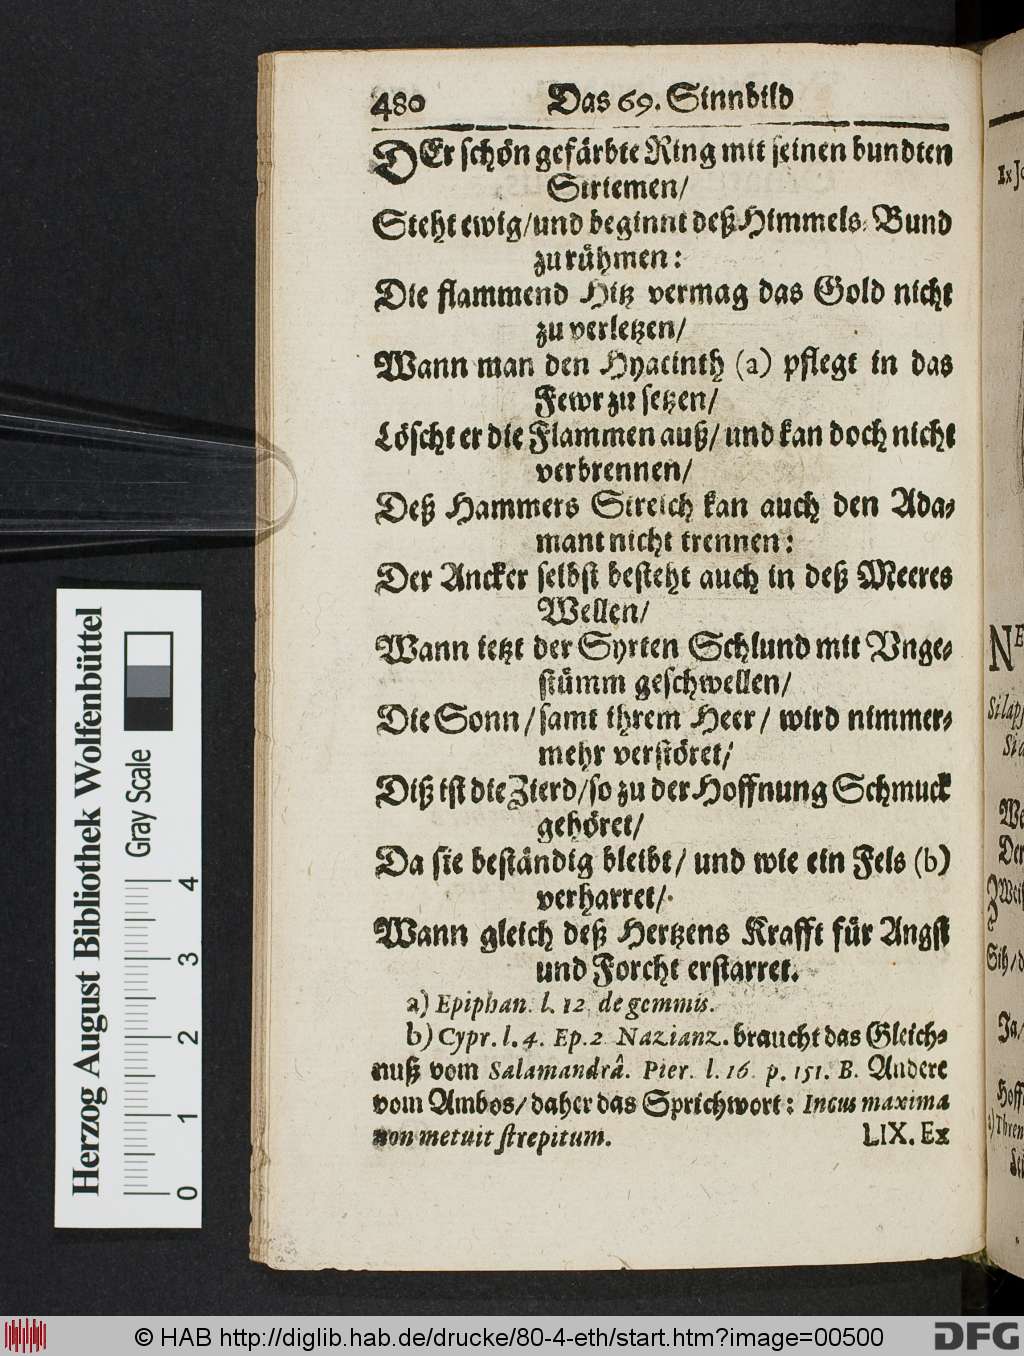 480 Das 69. Sinnbild
DEr schön gefärbte Ring mit seinen bundten
Striemen/
Steht ewig/und beginnt deß Himmels-Bund
zu rühmen:
Die flammend Hitz vermag das Gold nicht
zu verletzen/
Wann man den Hyacinth (a) pflegt in das
Fewr zu setzen/
Löscht er die Flammen auß/ und kan doch nicht
verbrennen/
Deß Hammers Streich kan auch den Ada-
mant nicht trennen:
Der Ancker selbst besteht auch in deß Meeres
Wellen/
Wann ietzt der Syrten Schlund mit Vnge-
stümm geschwellen/
Die Sonn/ samt ihrem Heer/ wird nimmer-
mehr verstöret/
Diß ist die Zierd/so zu der Hoffnung Schmuck
gehöret/
Da sie beständig bleibt/ und wie ein Fels (b)
verharret/
Wann gleich deß Hertzens Krafft für Angst
und Forcht erstarret.
a) Epiphan. l. 12. de gemmis.
b) Cypr. l. 4. Ep. 2. Nazianz. braucht das Gleich-
nuß vom Salamandrâ. Pier. l. 16. p. 151. B. Andere
vom Ambos/ daher das Sprichwort: Incus maxima
non metuit strepitum. LIX. Ex
Herzog August Bibliothek Wolfenbüttel
Gray Scale
0 1 2 3 4
© HAB http://diglib.hab.de/drucke/80-4-eth/start.htm?image=00500
DFG